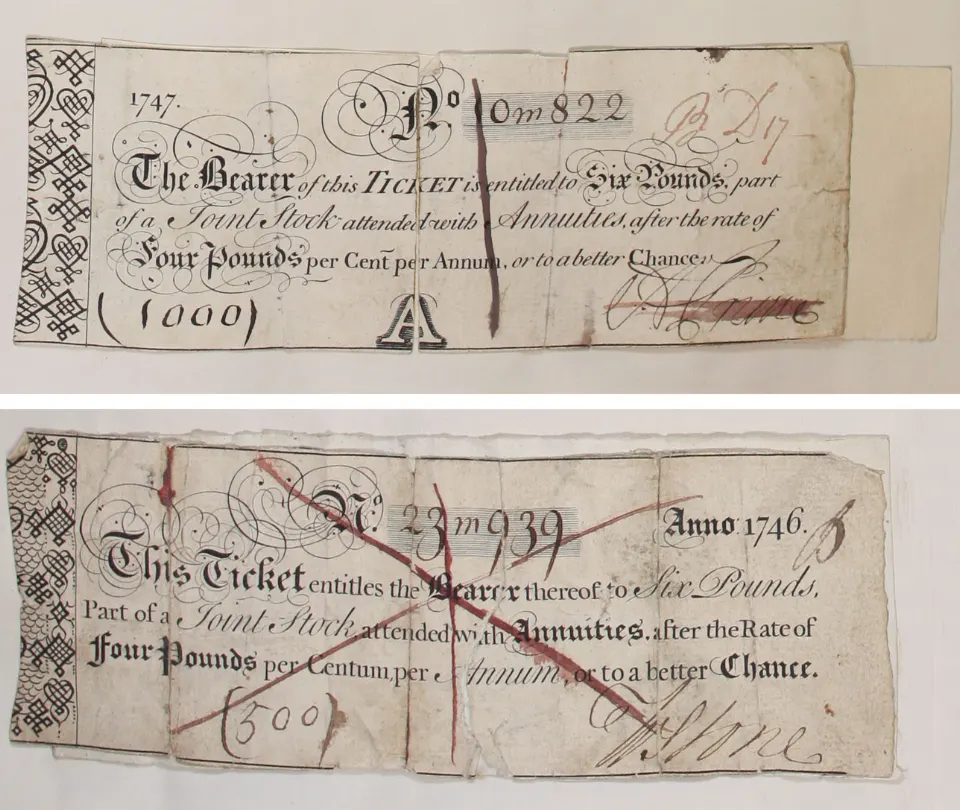 1747. No 10m822
The Bearer of this TICKET is entitled to Six Pounds, part
of a Joint Stock attended with Annuities, after the rate of
Four Pounds per Cent per Annum, or to a better Chance.
(1000)
A
No. 23m939 Anno 1746. B
This Ticket entitles the Bearer thereof to Six Pounds,
Part of a Joint Stock, attended with Annuities, after the Rate of
Four Pounds per Centum, per Annum, or to a better Chance.
(500)
Stone